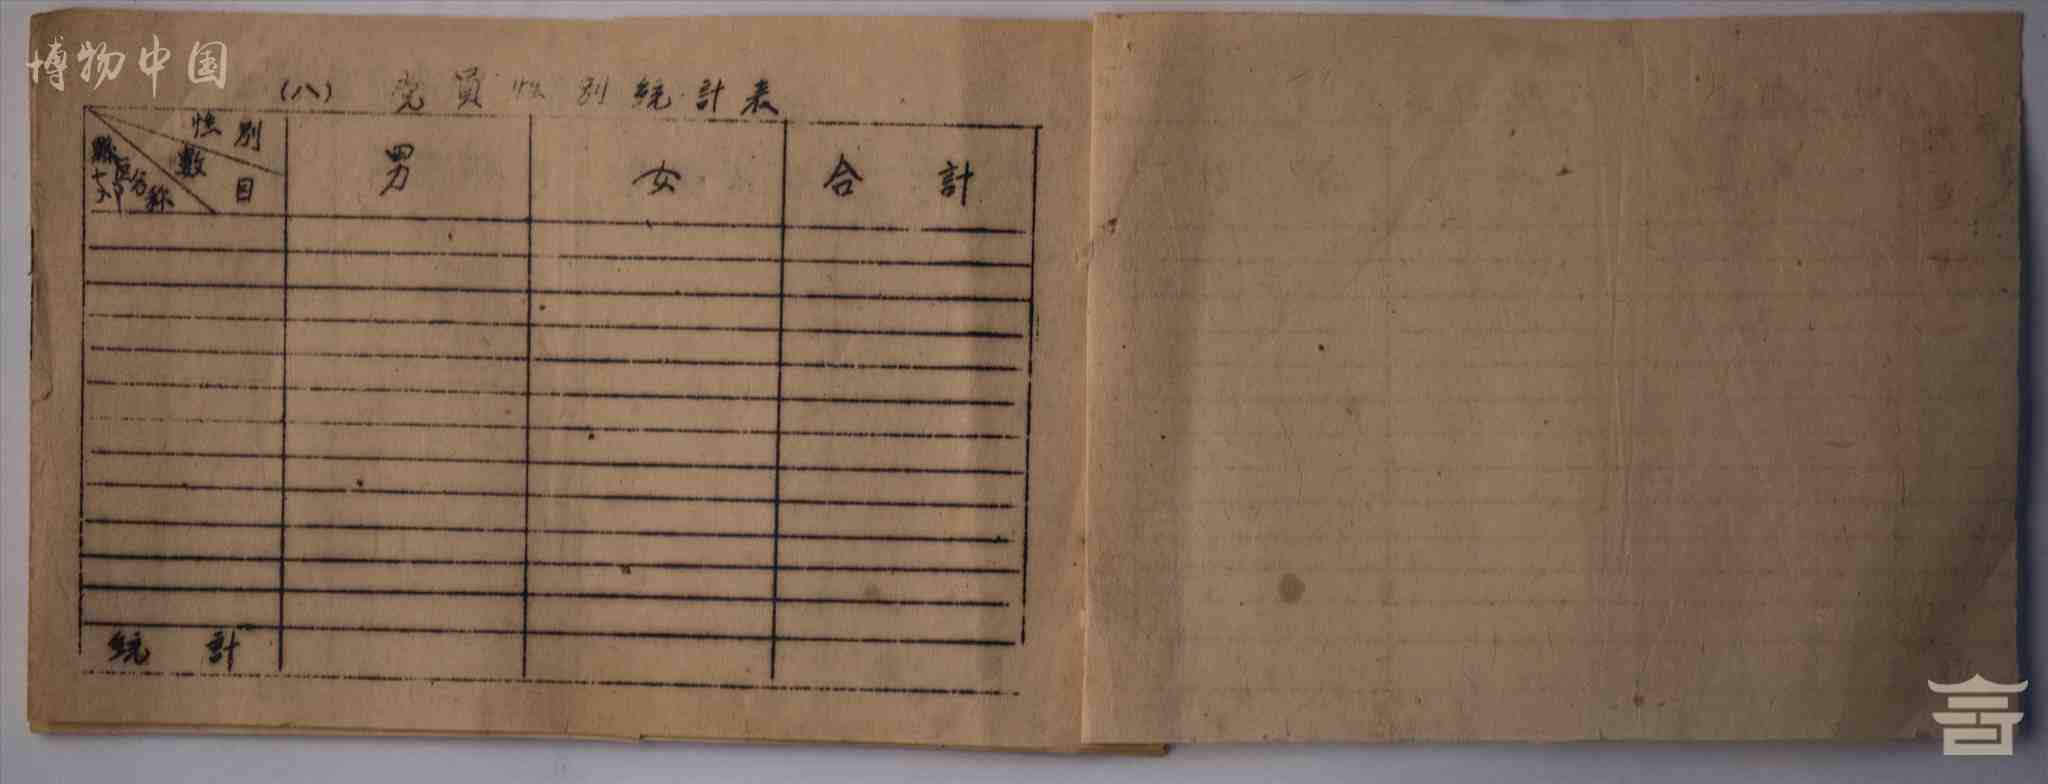 博物中国
(八) 党員性别統計表
性别
數目
縣区名称
男
女
合計
統計